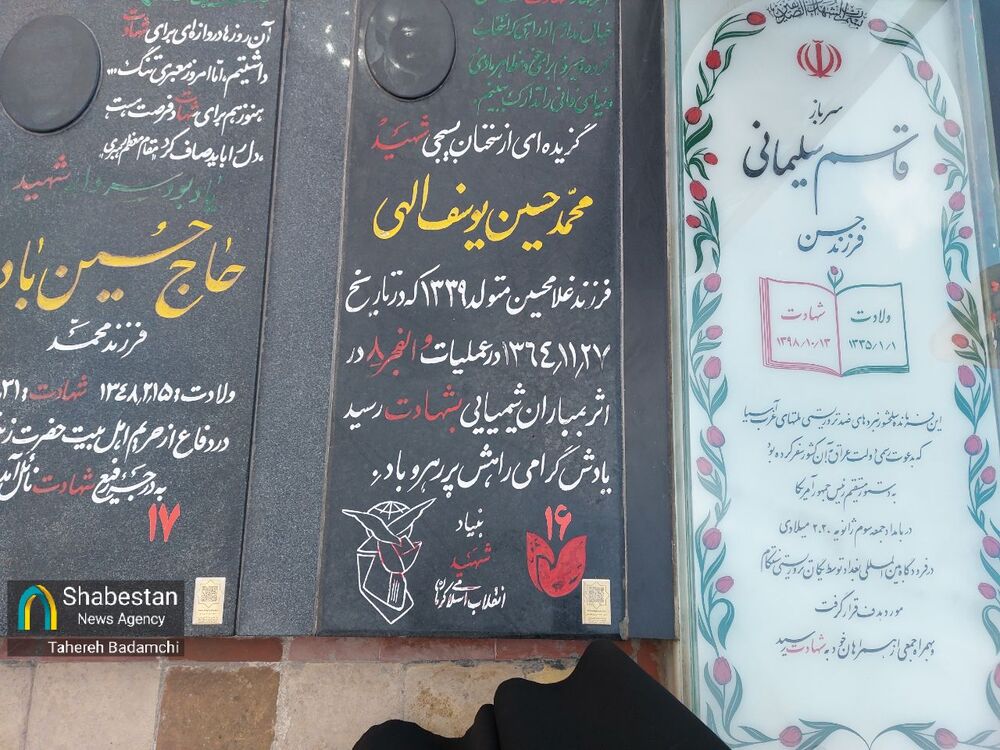 سرباز
قاسم سلیمانی
فرزند حسن
ولادت
۱۳۳۵/۱/۱
شهادت
۱۳۹۸/۱۰/۱۳
که بدعوت رسمی دولت عراق به آن کشور سفر کرده بود
به دستور مستقیم رئیس جمهور آمریکا
در بامداد جمعه سوم ژانویه ۲۰۲۰ میلادی
در فرودگاه بین المللی بغداد توسط یگان تروریستی سنتکام
مورد هدف قرار گرفت
و بهمراه جمعی از همرزمان خود به شهادت رسید
گزیده ای از سخنان بسیجی شهید
محمد حسین یوسف الهی
فرزند غلامحسین متولد ۱۳۳۹ که در تاریخ
۱۳۶۴/۱۱/۲۷ در عملیات والفجر ۸ در
اثر بمباران شیمیایی بشهادت رسید
یادش گرامی راهش پر رهرو باد.
بنیاد
شهید
انقلاب اسلامی کرمان
۱۶
آن روزها دروازه‌ای برای شهادت
داشتیم، اما امروز معبری تنگ...
هنوز هم برای شهادت فرصت هست
دل را باید صاف کرد. مقام معظم رهبری
یادبود سردار شهید
حاج حسین باد
فرزند محمد
ولادت: ۱۳۴۸/۲/۱۵ شهادت:
در دفاع از حریم اهل بیت حضرت
به درجه رفیع شهادت نائل آمد
۱۷
Shabestan
News Agency
Tahereh Badamchi